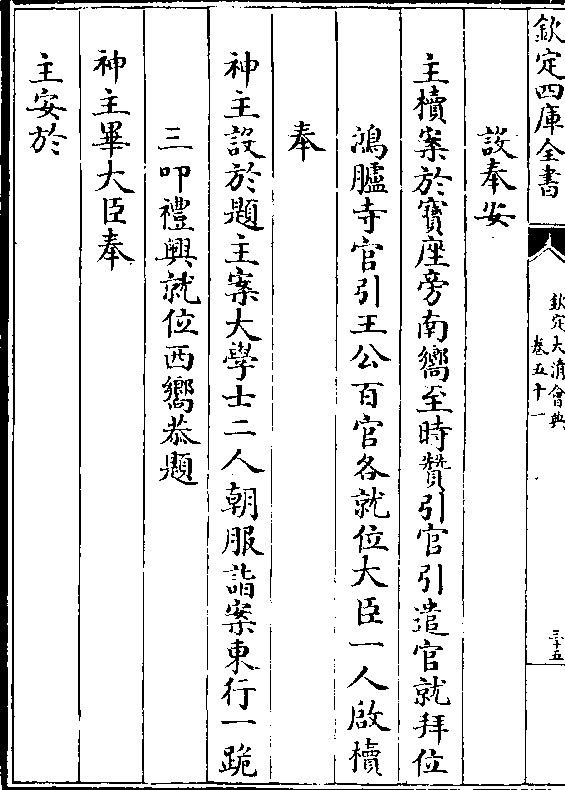 欽定四庫全書
欽定大清會典
卷五十一
三十五
設奉安
主櫝案於寶座旁南嚮至時贊引官引遣官就拜位
鴻臚寺官引王公百官各就位大臣一人啟櫝
奉
神主設於題主案大學士二人朝服詣案東行一跪
三叩禮興就位西嚮恭題
神主畢大臣奉
主安於